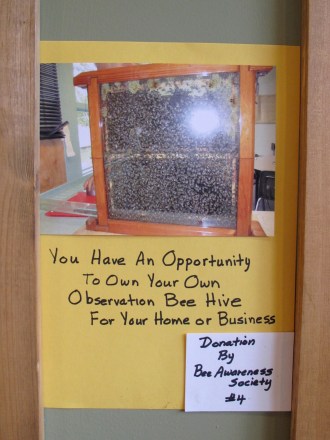 You Have An Opportunity
To Own Your Own
Observation Bee Hive
For Your Home or Business
Donation
By
Bee Awareness
Society
#4